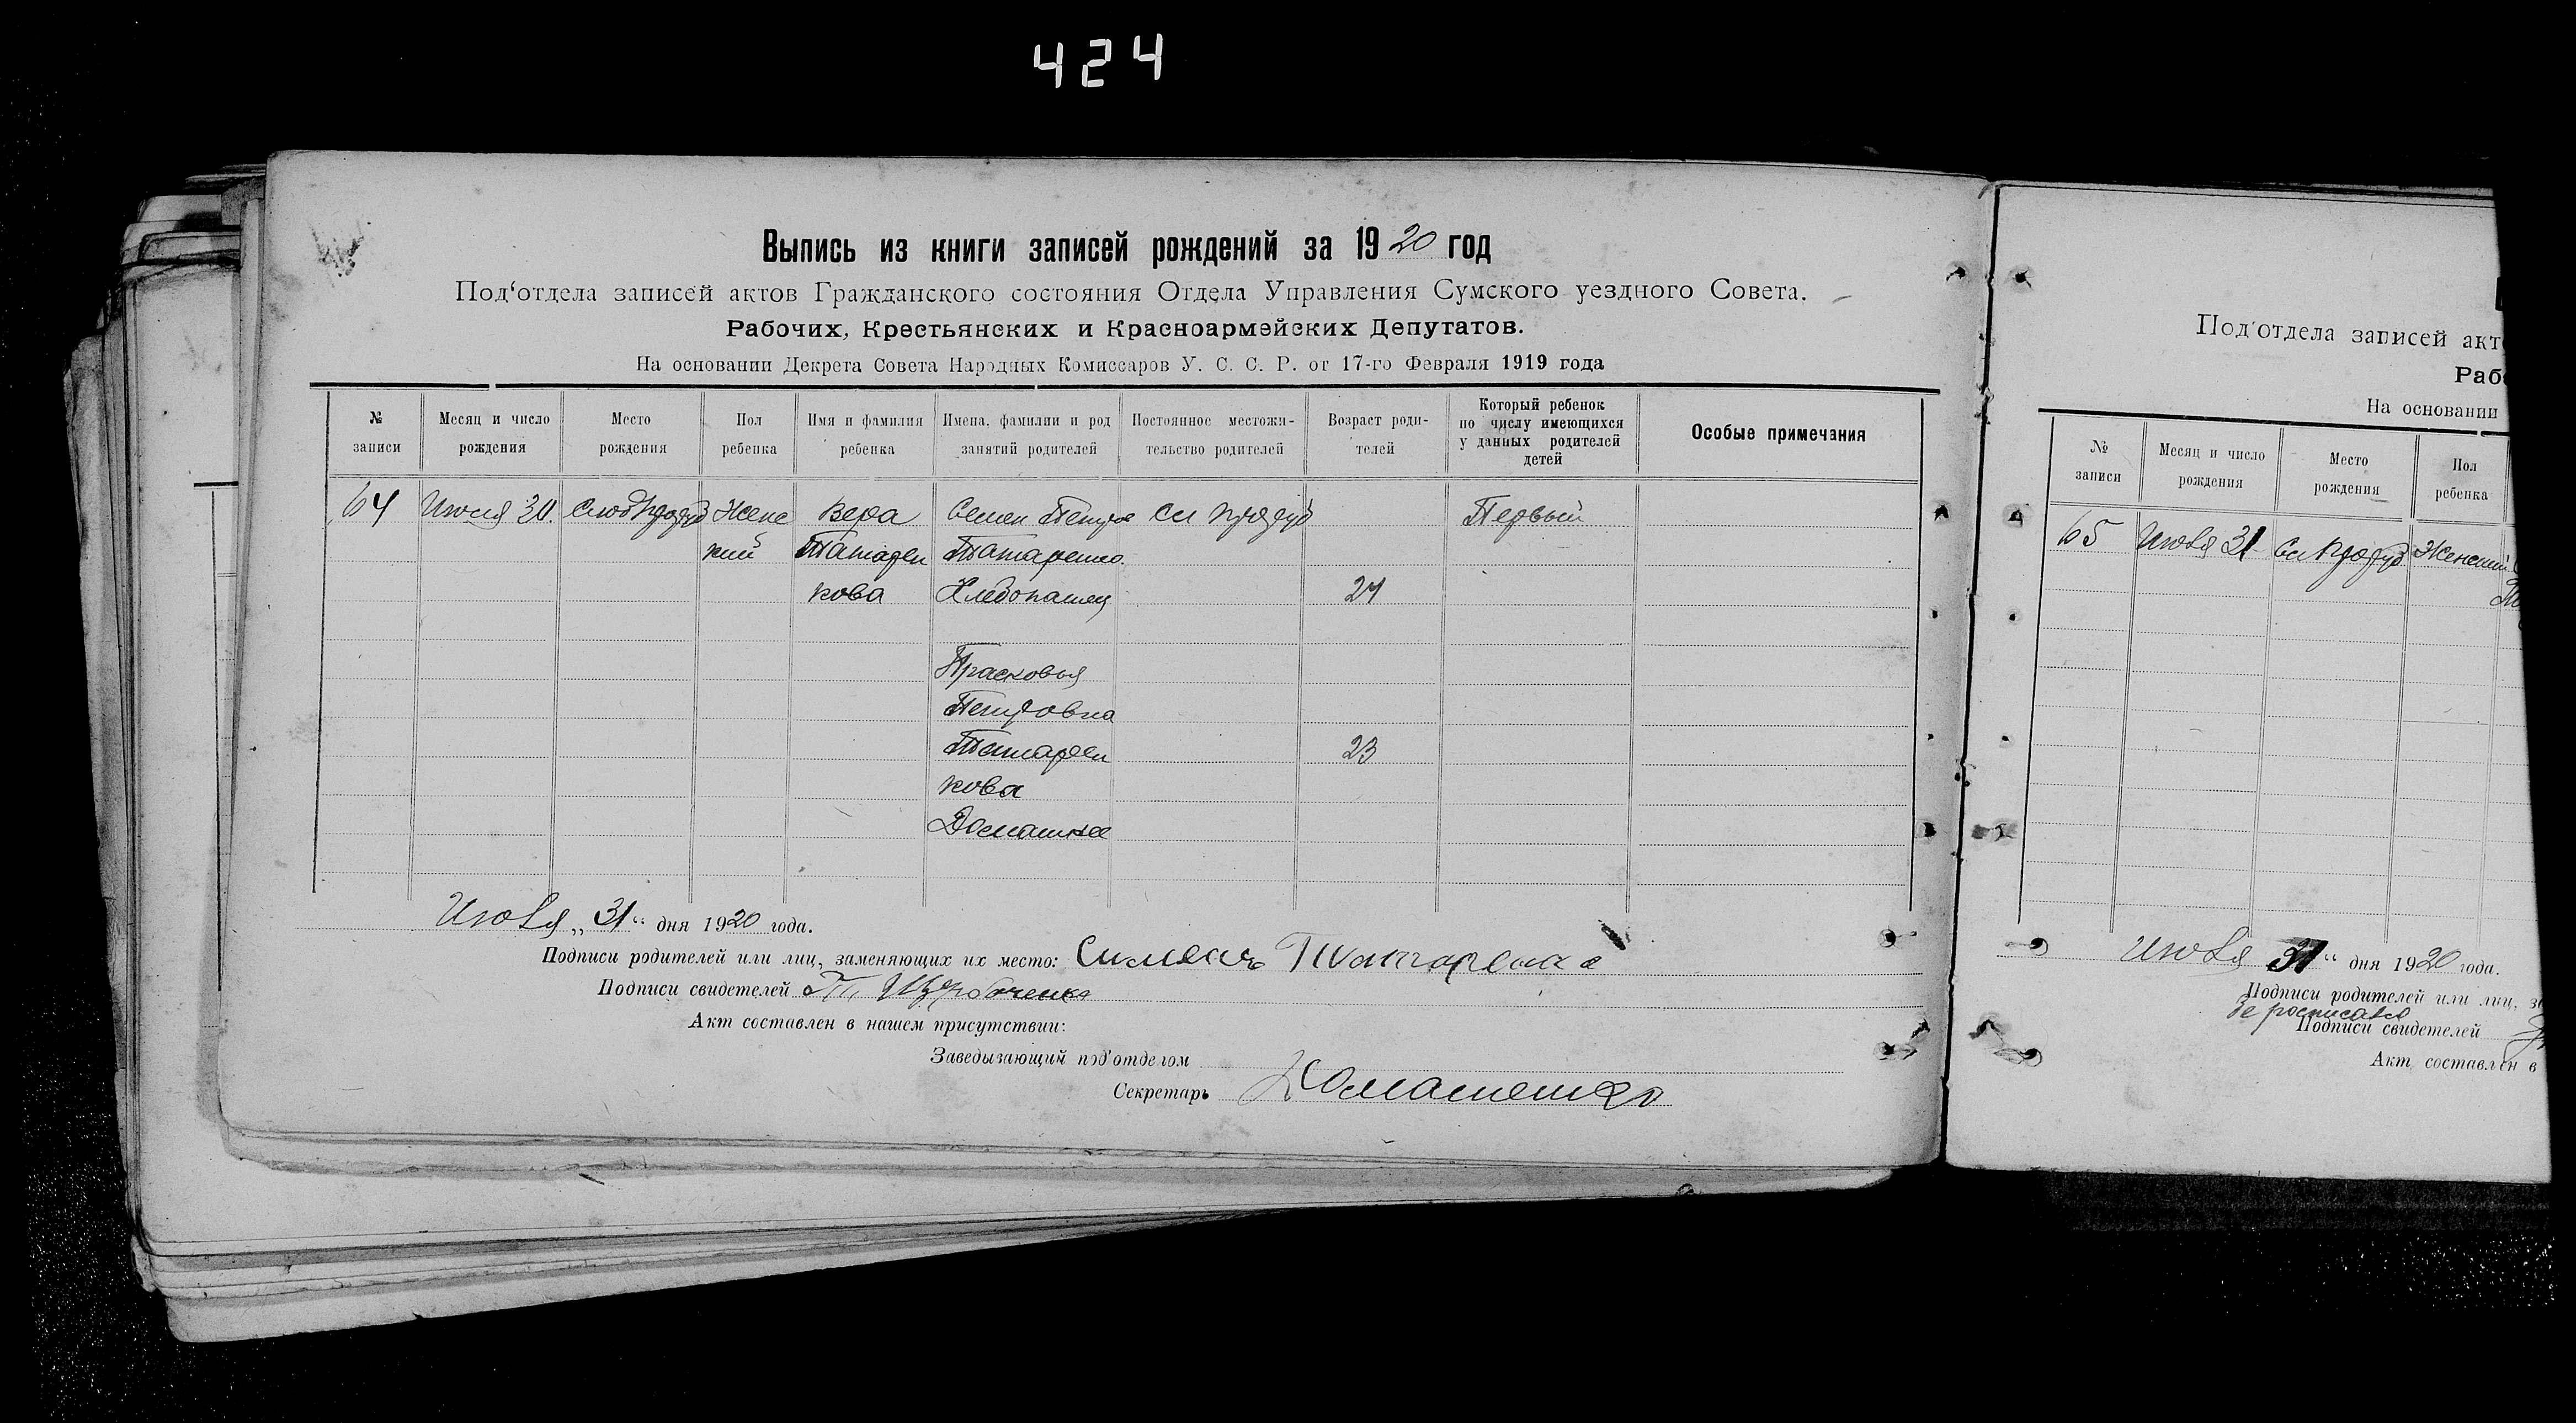 424
Выпись из книги записей рождений за 1920 год
Под‘отдела записей актов Гражданского состояния Отдела Управления Сумского уездного Совета.
Рабочих, Крестьянских и Красноармейских Депутатов.
На основании Декрета Совета Народных Комиссаров У. С. С. Р. от 17-го Февраля 1919 года
№ записи
Месяц и число рождения
Место рождения
Пол ребенка
Имя и фамилия ребенка
Имена, фамилии и род занятий родителей
Постоянное местожительство родителей
Возраст родителей
Который ребенок по числу имеющихся у данных родителей детей
Особые примечания
64 Июля 30. Женс Вера Семен Первый
кий Татарен Татаренко.
кова Хлебопашец
Прасковья
Петровна
Татарен 23
кова
Домашнее
Июля „31“ дня 1920 года.
Подписи родителей или лиц, заменяющих их место:
Подписи свидетелей
Акт составлен в нашем присутствии:
Заведывающий под‘отделом
Секретарь
Под‘отдела записей акт
Раб
На основании
№ записи
Месяц и число рождения
Место рождения
Пол ребенка
65 Июля 31 Женский
Июля 31“ дня 1920 года.
Подписи родителей или лиц, з
Подписи свидетелей
Акт составлен в